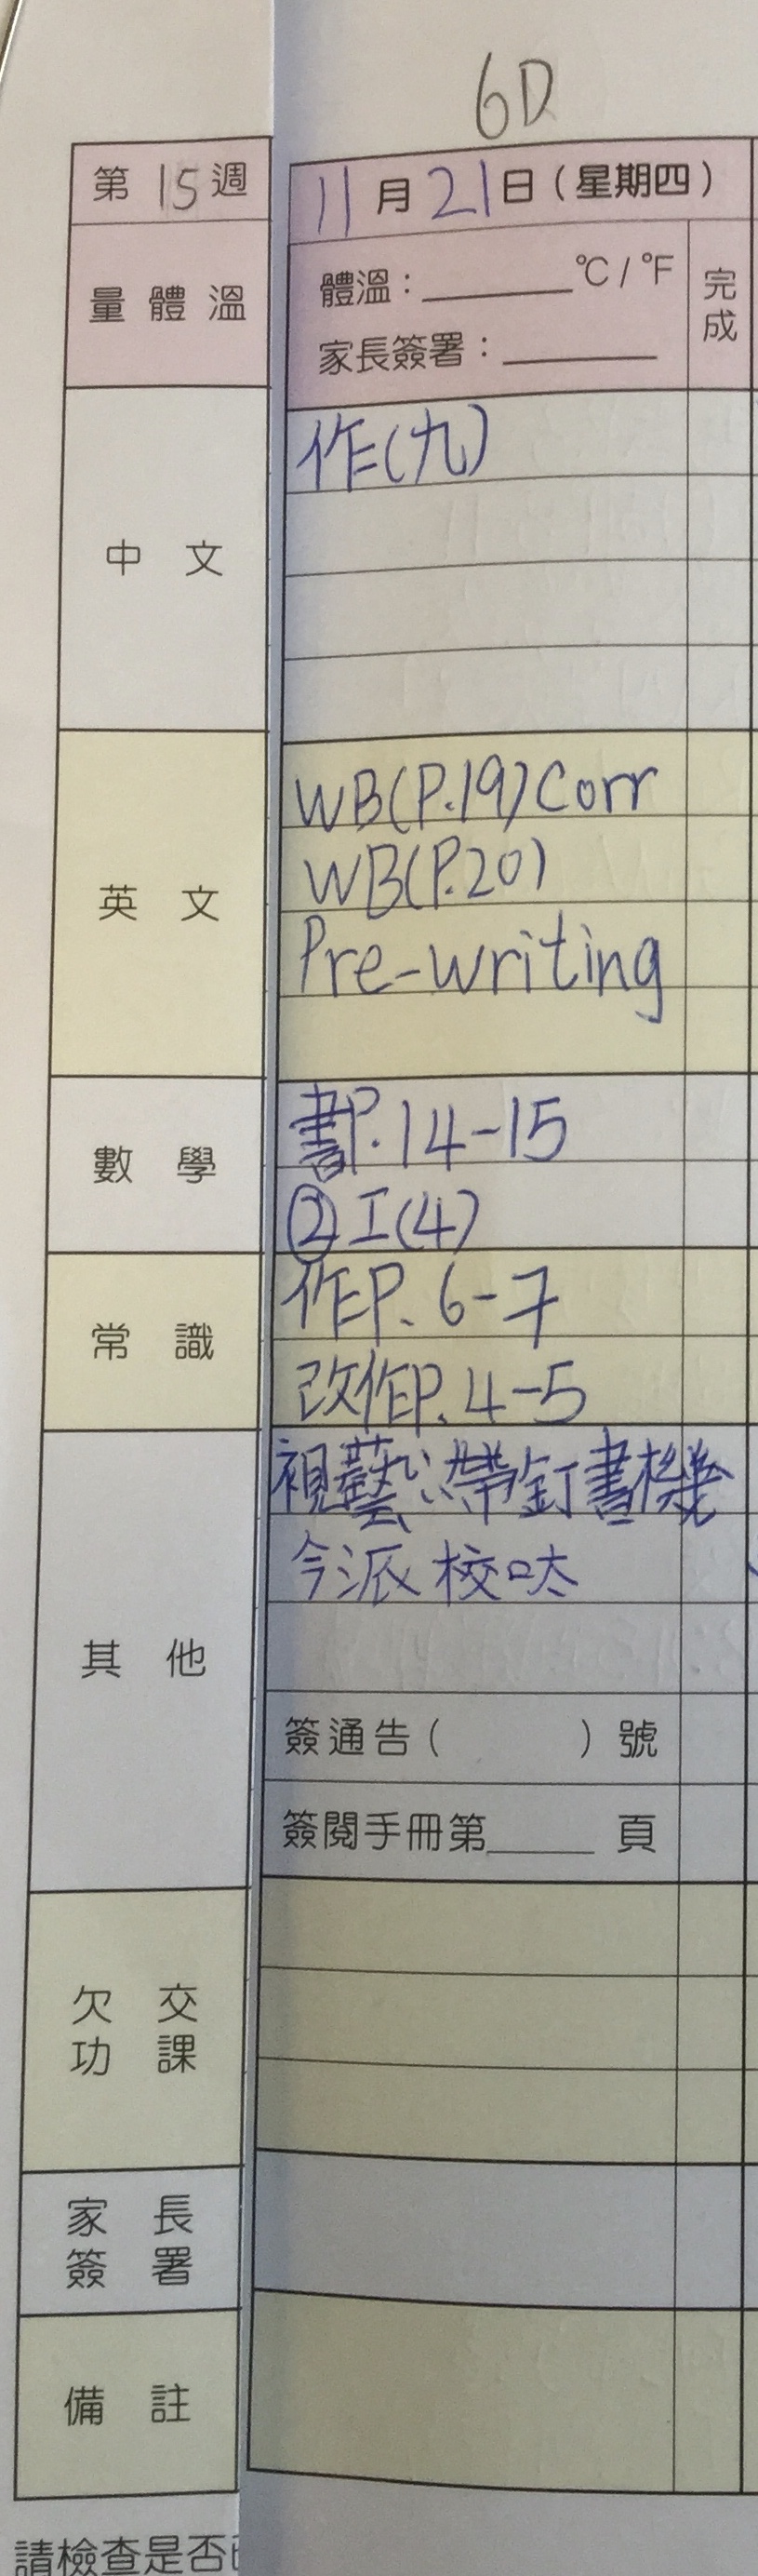 6D
第15週
11月21日(星期四)
量體溫
體溫:______°C/°F
家長簽署:______
完成
中文
作(九)
英文
WB(P.19)Corr
WB(P.20)
Pre-writing
數學
書P.14-15
②工(4)
常識
作P.6-7
改作P.4-5
其他
視藝:帶釘書機
今派校呔
簽通告( )號
簽閱手冊第______頁
欠交
功課
家長
簽署
備註
請檢查是否已